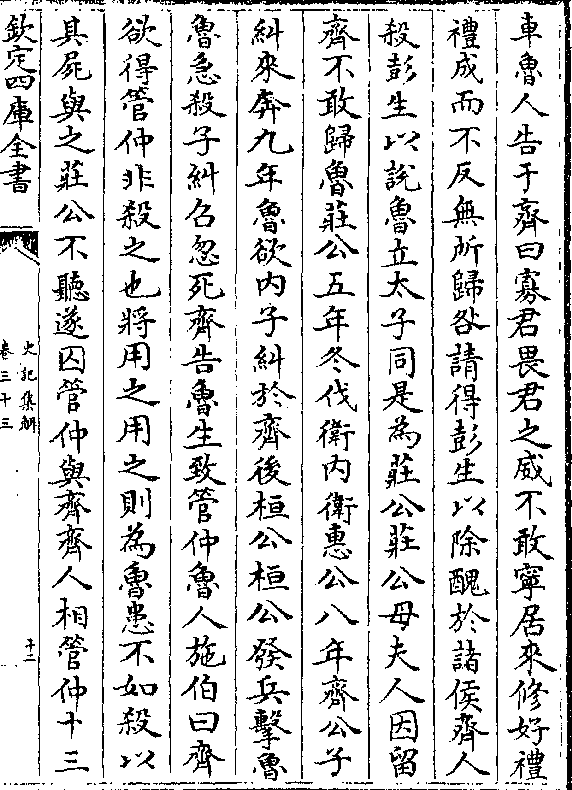 車魯人告于齊曰寡君畏君之威不敢寧居來修好禮
禮成而不反無所歸咎請得彭生以除醜於諸侯齊人
殺彭生以說魯立太子同是為莊公莊公母夫人因留
齊不敢歸魯莊公五年冬伐衛內衛惠公八年齊公子
糾來奔九年魯欲內子糾於齊後桓公桓公發兵擊魯
魯急殺子糾召忽死齊告魯生致管仲魯人施伯曰齊
欲得管仲非殺之也將用之用之則為魯患不如殺以
其屍與之莊公不聽遂囚管仲與齊齊人相管仲十三
欽定四庫全書
史記集解
卷三十三
十二